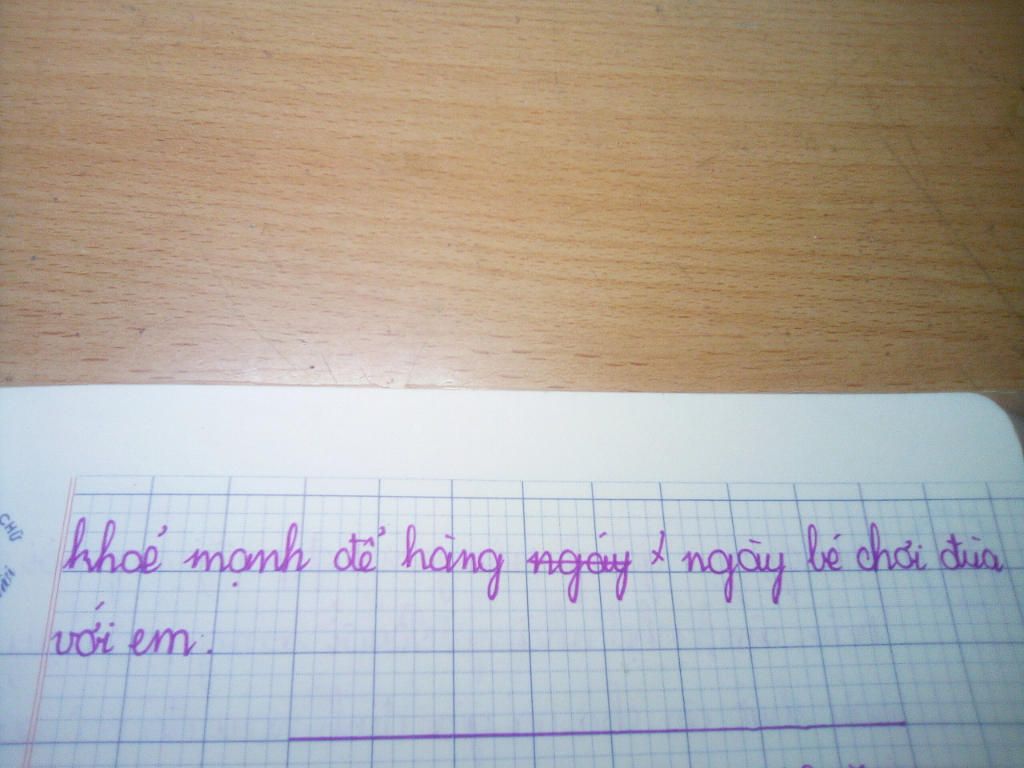 khoẻ mạnh để hàng ngáy x ngày bé chơi đùa
với em.
CHỮ